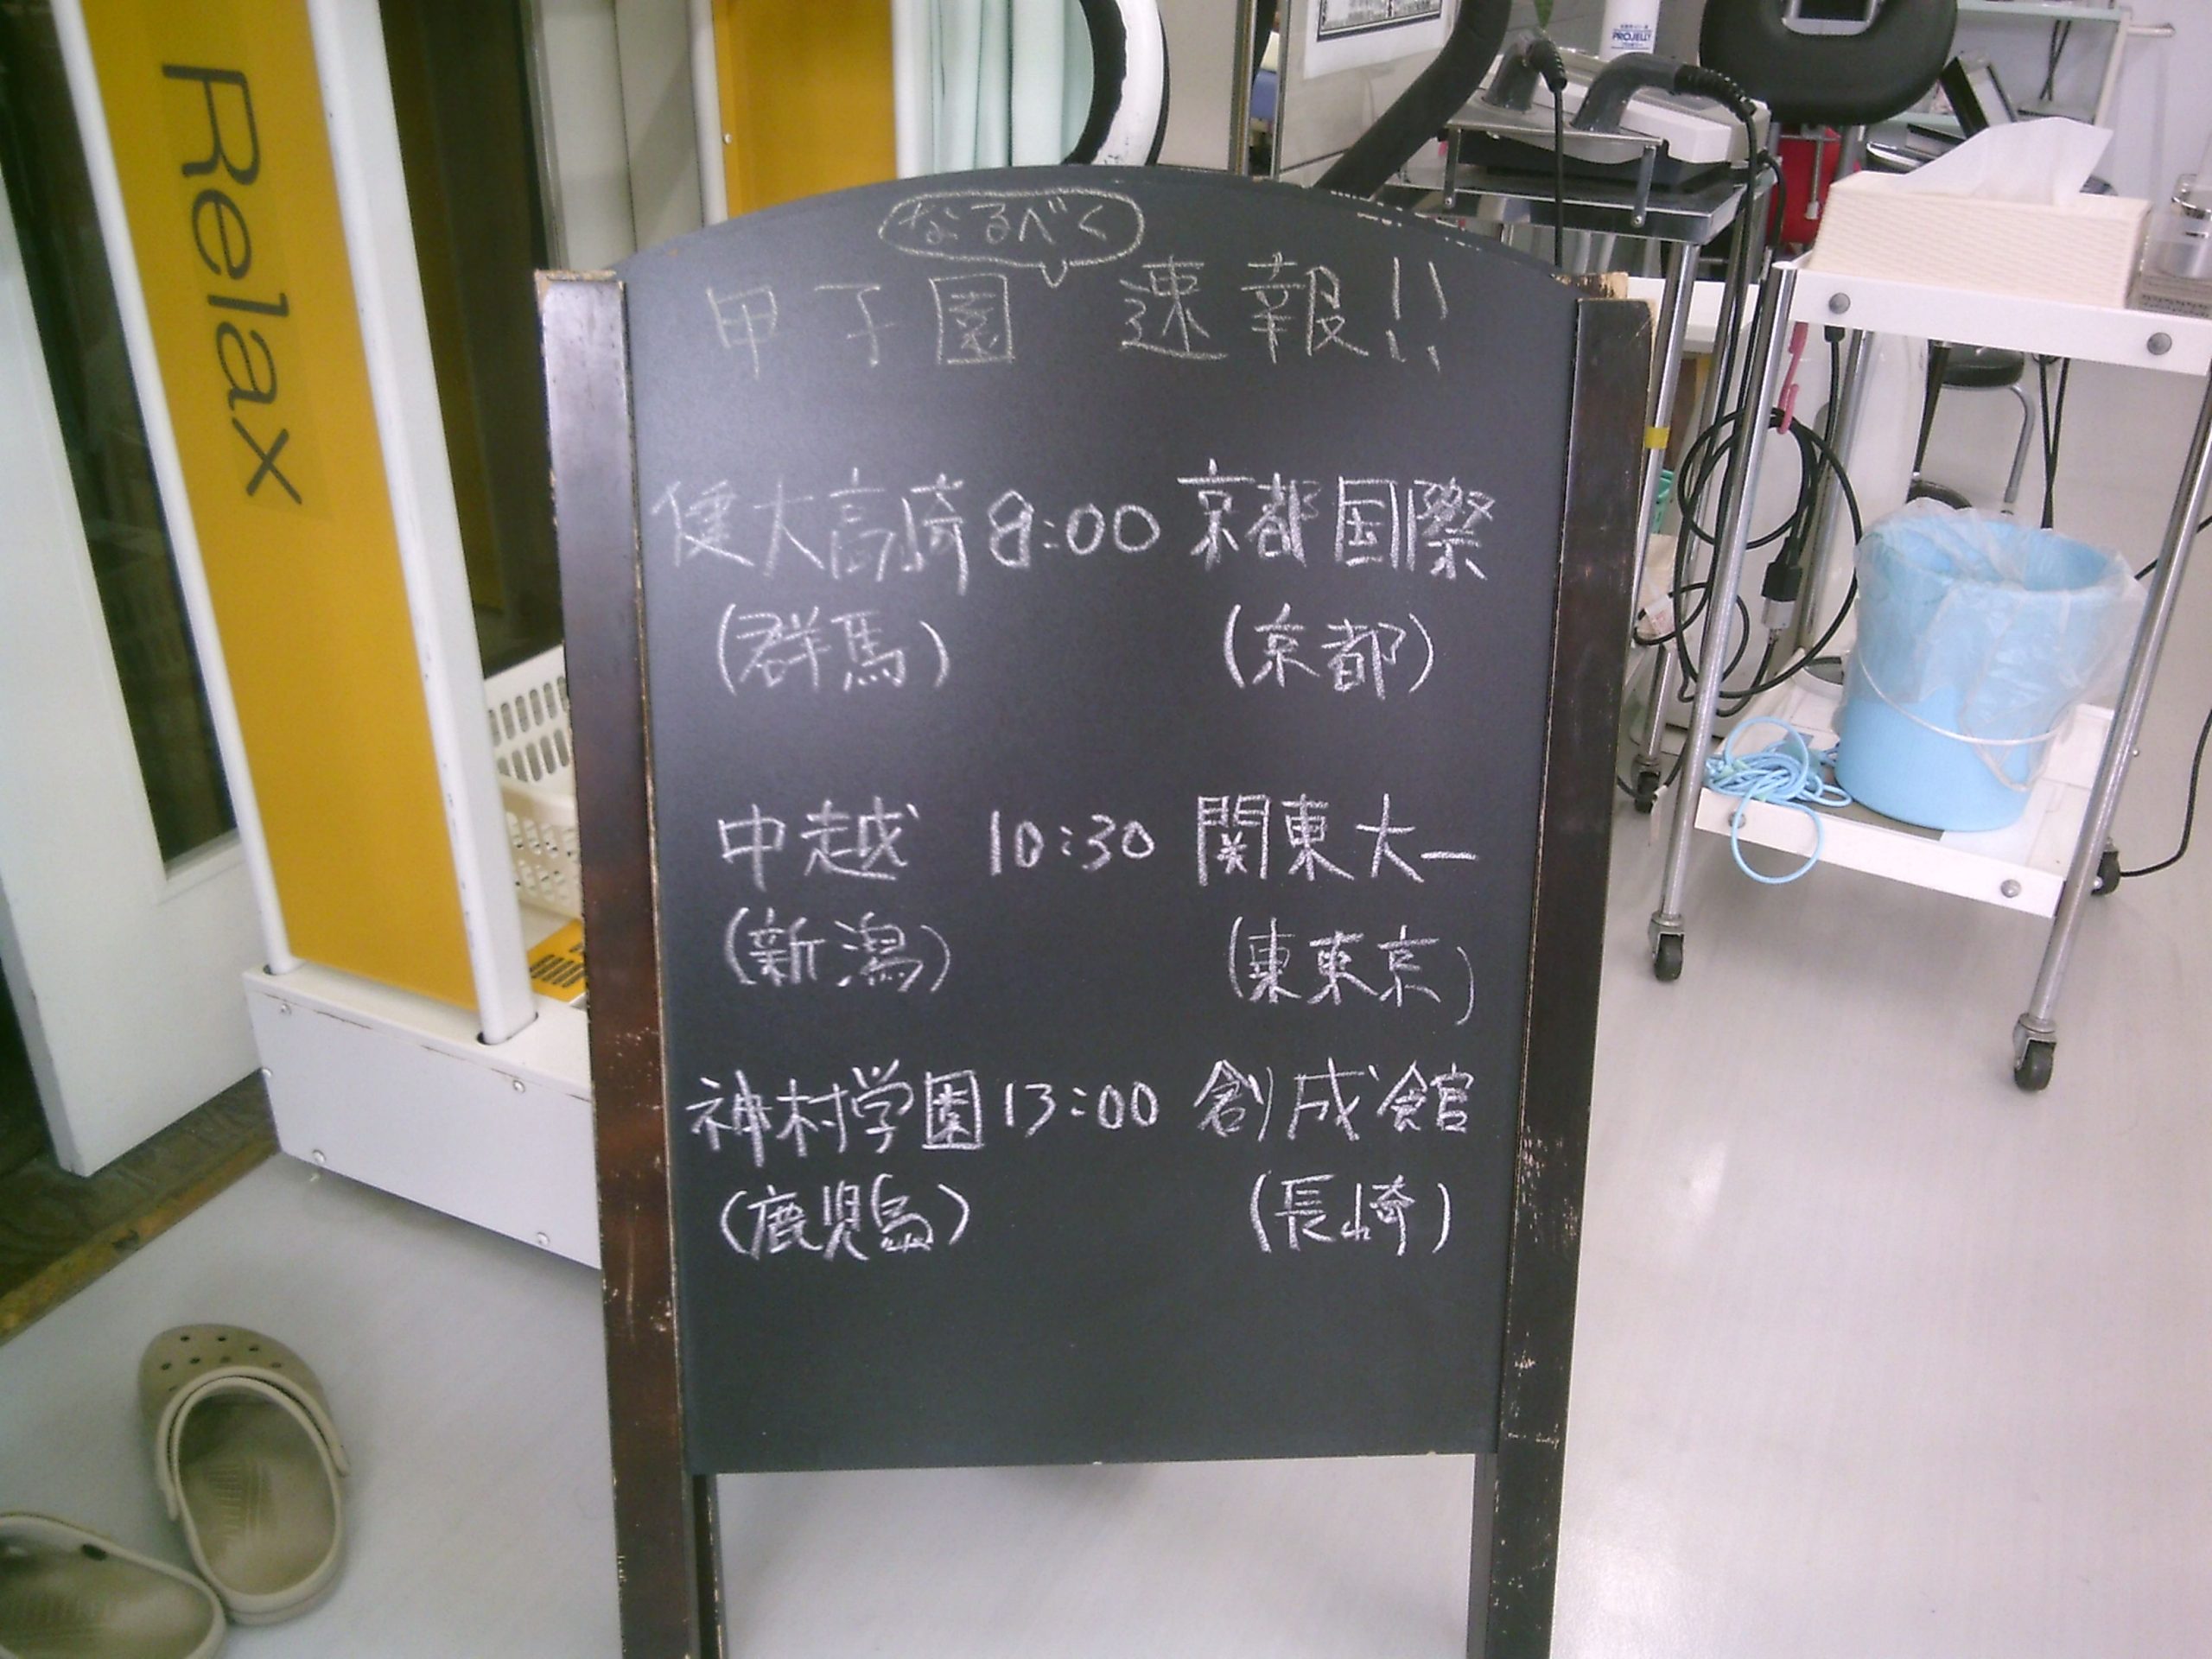 Relax
PROJELLY
なるべく
甲子園 速報!!
健大高崎 8:00 京都国際
(群馬) (京都)
中越 10:30 関東大一
(新潟) (東東京)
神村学園 13:00 創成館
(鹿児島) (長崎)